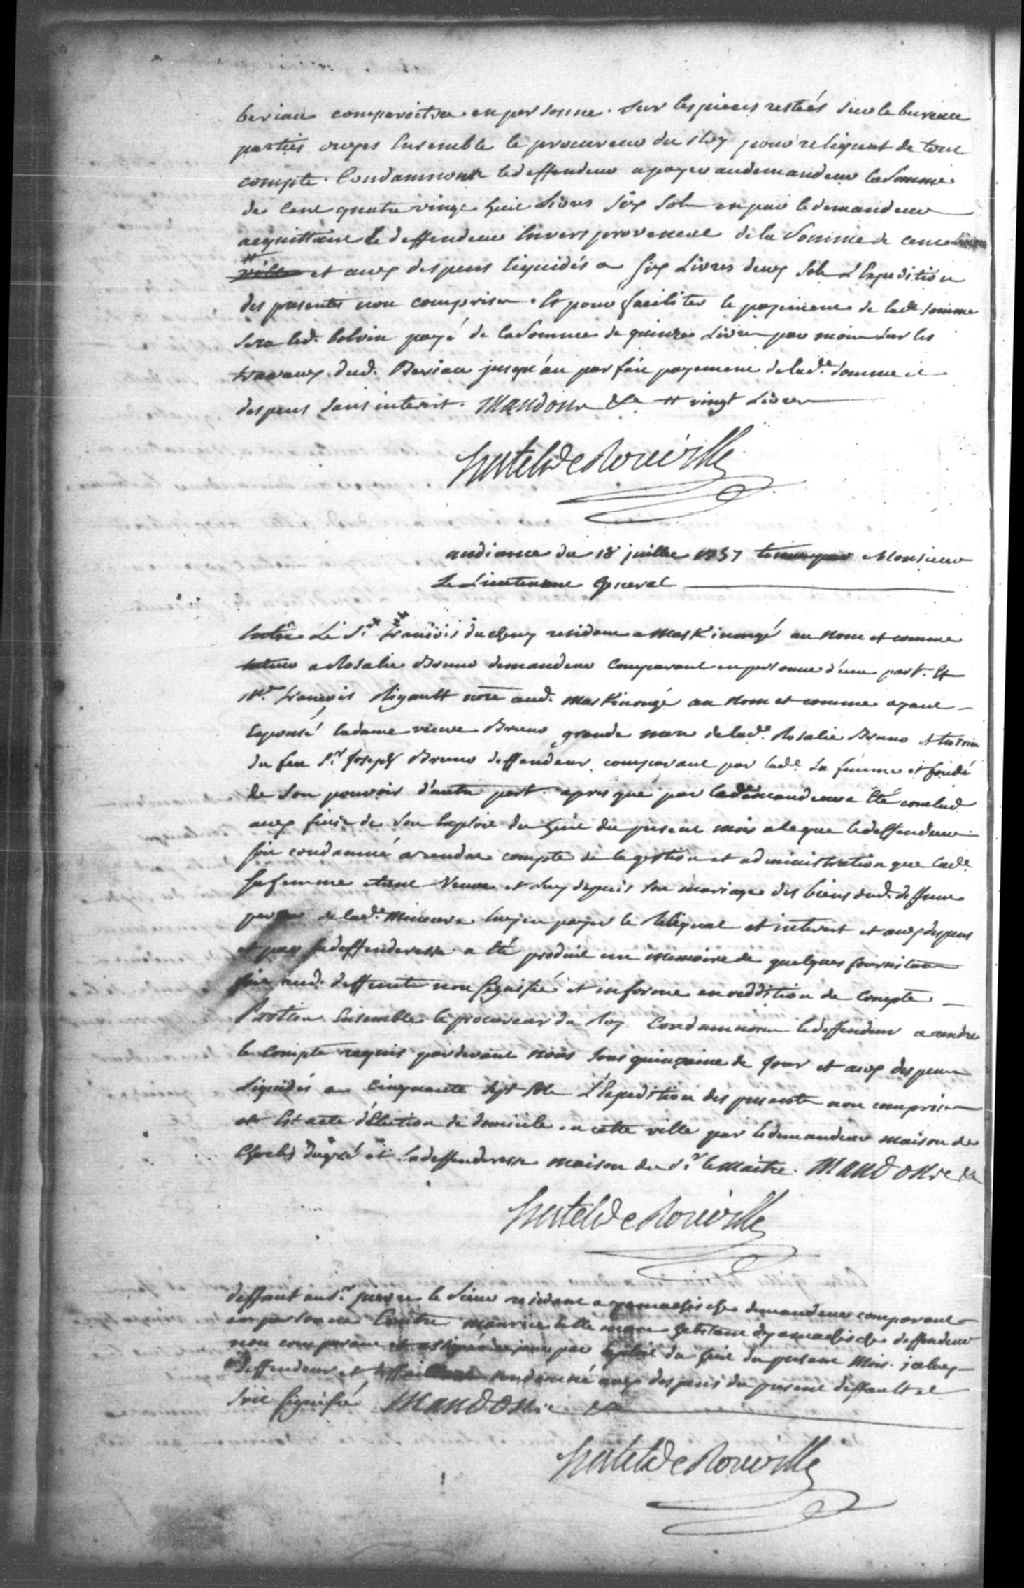 beriau comparoitre en personne. Sur les pieces restées sur le bureau
parties ouyes Ensemble le procureur du Roy pour reliquat de tout
compte. Condamnons le deffendeur a payer au demandeur la Somme
de Cent quatre vingt huit Livres six Sols en par le demandeur
acquittant le deffendeur Envers provencal de la Somme de cent
et aux despens liquidés a six Livres deux Sols L'Expedition
des presentes non comprise. Et pour faciliter le payement de lade. somme
Sera led. bolvin payé de la Somme de quinze Livres par mois sur les
travaux dud. Beriau jusqu'au parfait payement de lade. Somme et
despens sans interest. Mandons &a # vingt Livres
hertel de Rouville
audiance du 18 juillet 1757 tenue par Monsieur
Le Lieutenant General
Entre Le Sr. françois ducheny resident a Maskinongé au nom et comme
tuteur a Rosalie Bruno demandeur comparant en personne d'une part. Et
Mr. françois Rigault nore aud. Maskinongé au Nom et comme ayant
Epousé la dame veuve Bruno grande mere de lade. Rosalie Bruno
du feu Sr. Joseph Bruno deffendeur, comparant par lade. Sa femme et fondé
de Son pouvoir d'autre part. apres que par le demandeur a Eté conclud
aux fins de Son Exploit du huit du present mois a ce que le deffendeur
soit condamné a rendre compte de la gestion et administration que lade.
Sa femme Etant Veuve et Luy depuis son mariage des biens dud. deffunt
pere de lade. Mineure Luy en payer le Reliquat et interest et aux despens
et par la deffenderesse a Eté produit un memoire de quelques fournitures
fait aud. deffunt non signifié et informe en reddition de compte
Parties Ensemble le procureur du Roy Condamnons le deffendeur a rendre
le Compte requis pardevant Nous Sous quinzaine de Jour et aux despens
Liquidés a Cinquante sept Sols L'Expedition des presentes non comprise
et Est acte d'Election de domicile en cette ville par le demandeur maison de
Charles Dugré et la deffenderesse maison du Sr. lemaitre. Mandons &a
hertel de Rouville
deffaut au Sr. pierre le Sieur resident a yamachiche demandeur comparant
en personne Contre maurice belle mare habitant dyamachiche deffendeur
non comparant et assigné a ce jour par Exploit du huit du present Mois.
deffendeur et deffaillant condamné aux despens du present deffault et
soit signifié Mandons &a
hertel de Rouville